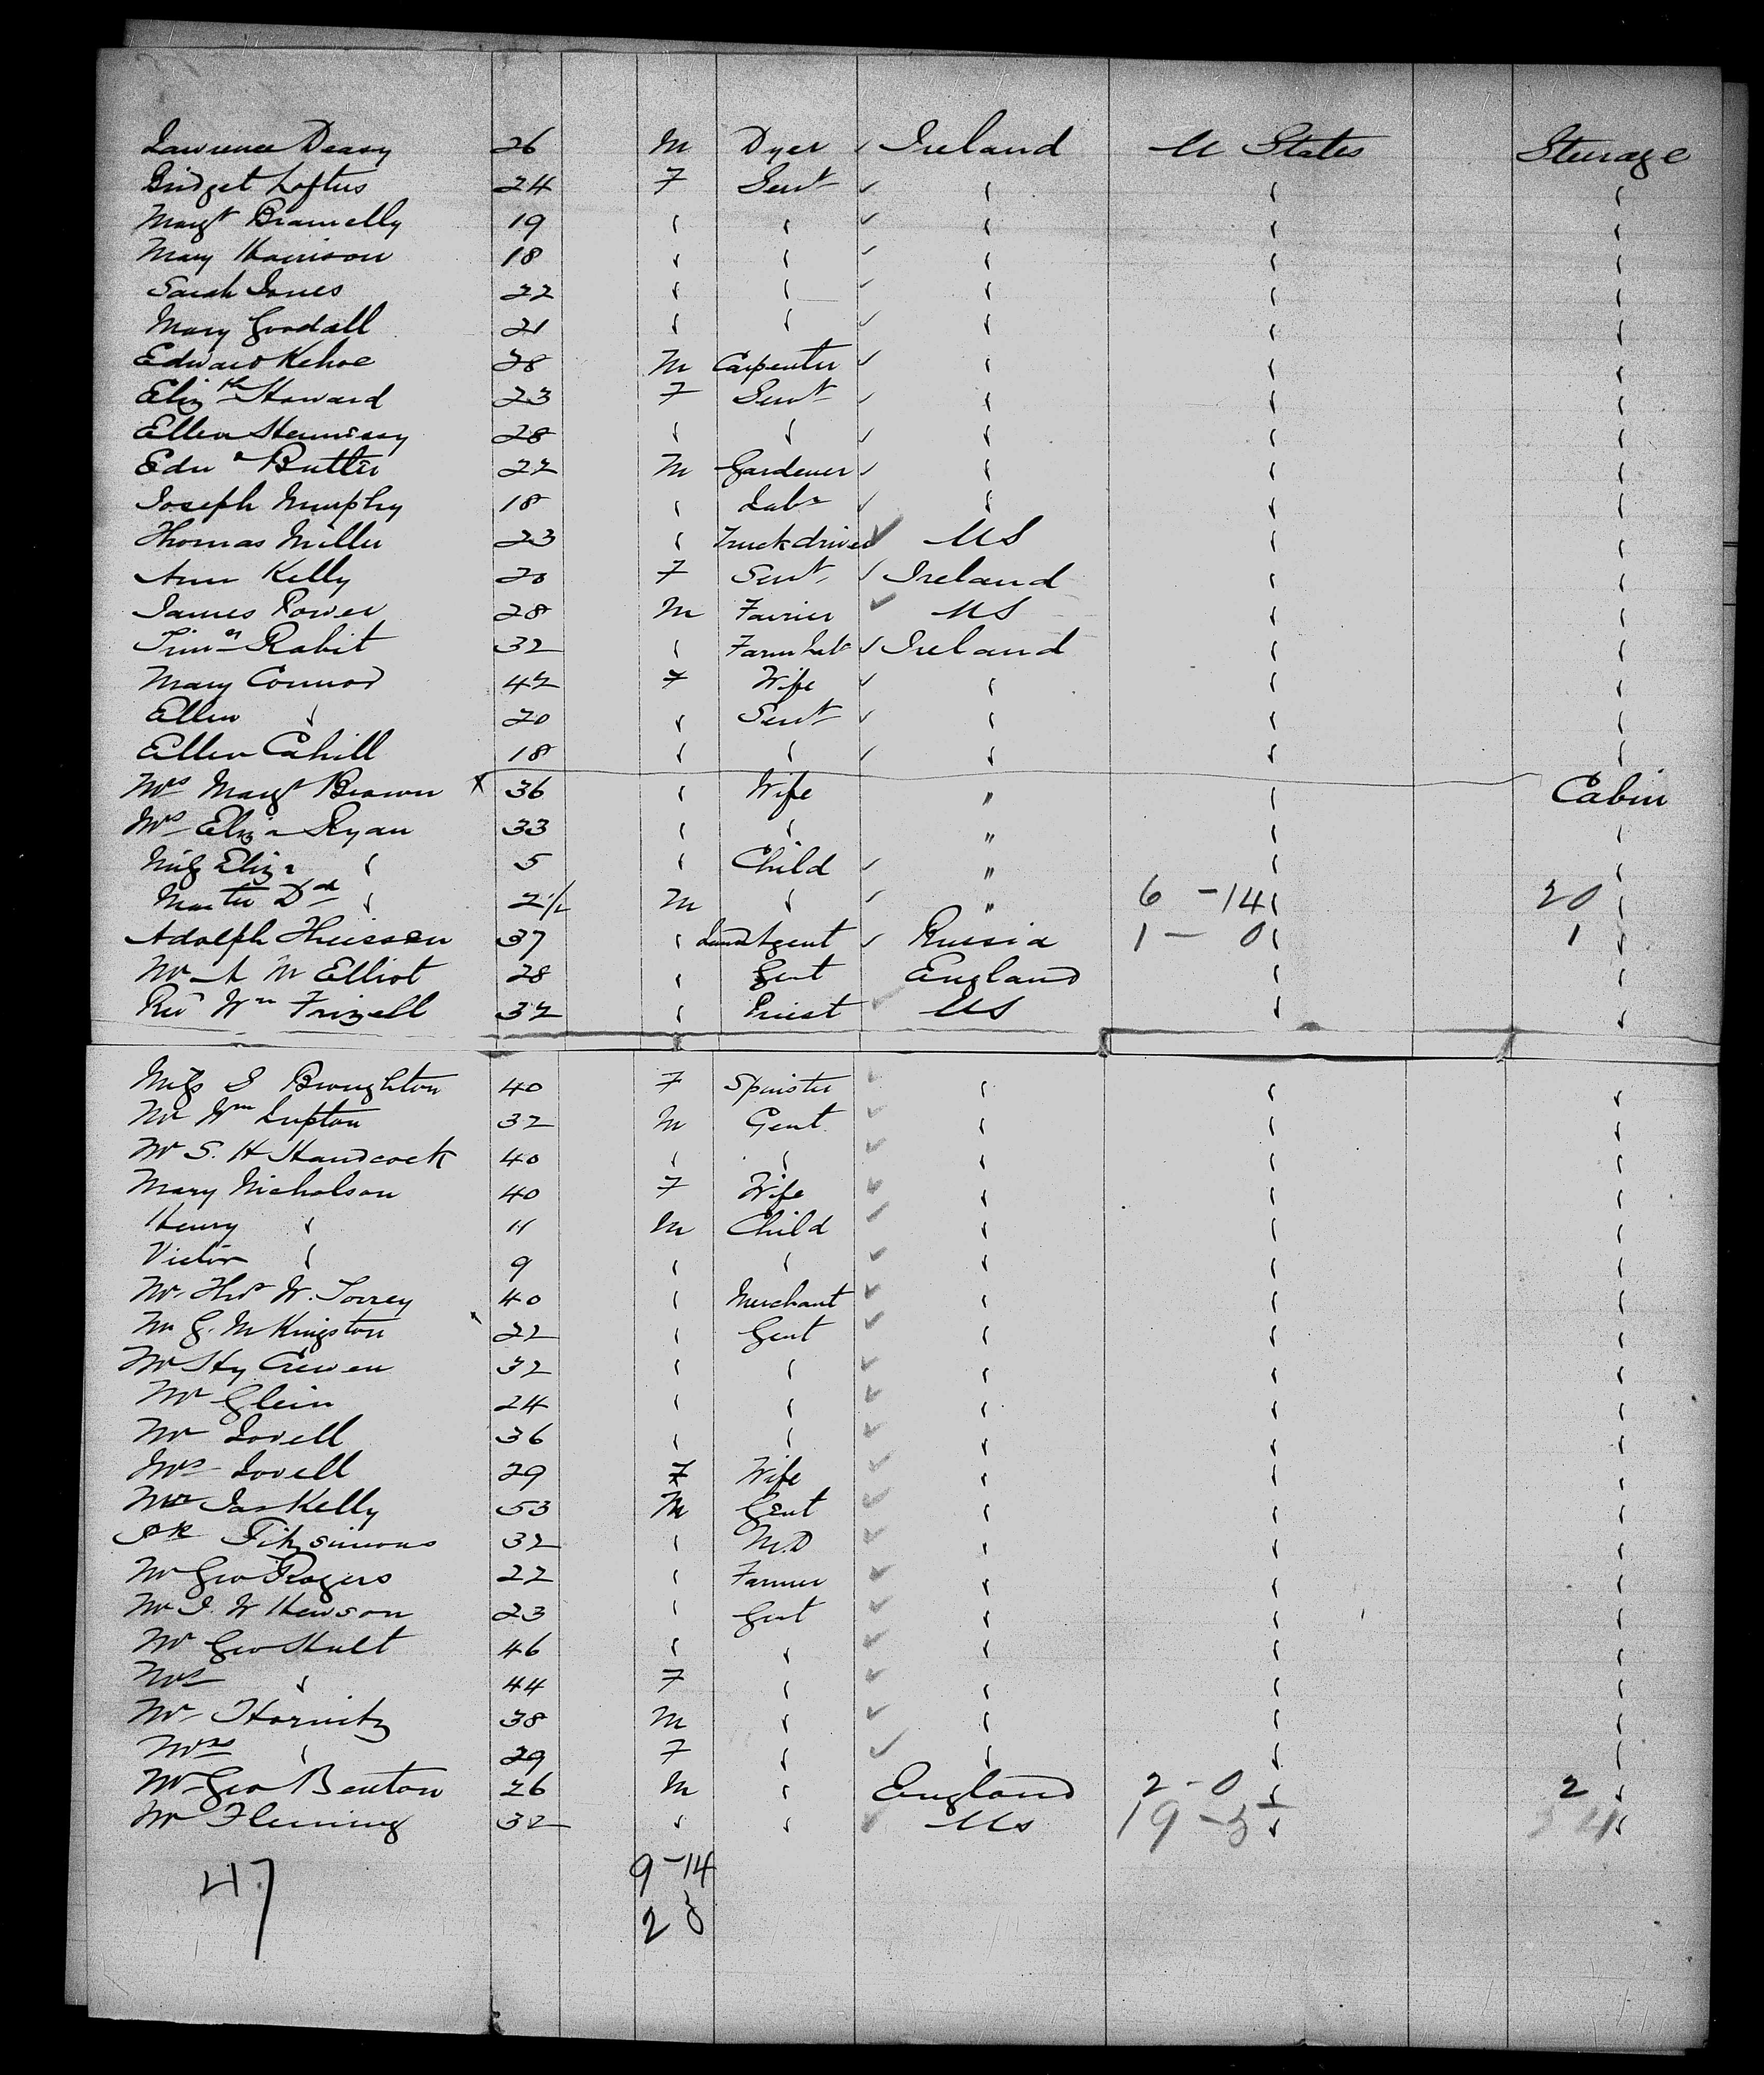 Lawrence Deasy 26 M Dyer ✓ Ireland U States Steerage
Bridget Loftus 24 F Servt ✓ " " "
Margt 19 " " ✓ " " "
Mary Harrison 18 " " ✓ " " "
Sarah Jones 22 " " ✓ " " "
Mary Goodall 21 " " ✓ " " "
Edward Kehoe 28 M Carpenter ✓ " " "
Elizth Howard 23 F Servt ✓ " " "
Ellen Hennessy 28 " " ✓ " " "
Edwd Butler 22 M Gardener ✓ " " "
Joseph Murphy 18 " Labr ✓ " " "
Thomas Miller 23 " Truckdriver ✓ US " "
Ann Kelly 20 F Servt ✓ Ireland " "
James Power 28 M Farrier ✓ US " "
Timy Rabit 32 " Farm Lab ✓ Ireland " "
Mary Connor 42 F Wife ✓ " " "
Ellen " 20 " Servt ✓ " " "
Ellen Cahill 18 " " ✓ " " "
Mrs Margt Brown x 36 " Wife " " Cabin
Mrs Eliza Ryan 33 " " " " "
Miss Eliza " 5 " Child ✓ " " "
Master Dd " 2 1/2 M " ✓ " 6 - 14 " 20 "
Adolph 37 " Land Agent ✓ Russia 1 - 0 " 1 "
Mr A M Elliot 28 " Gent England " "
Revd Wm Frizell 32 " Priest ✓ US " "
Miss S Broughton 40 F Spinster ✓ " " "
Mr Wm Lupton 32 M Gent ✓ " " "
Mr S. H Handcock 40 " " ✓ " " "
Mary Nicholson 40 F Wife ✓ " " "
Henry " 11 M Child ✓ " " "
Victor " 9 " " ✓ " " "
Mr Thos W. Torrey 40 " Merchant ✓ " " "
Mr G. M Kingston 22 " Gent ✓ " " "
Mr Hy Crewen 32 " " ✓ " " "
Mr Glein 24 " " ✓ " " "
Mr Lovell 36 " " ✓ " " "
Mrs Lovell 29 F Wife ✓ " " "
Mr Jas Kelly 53 M Gent ✓ " " "
Fitzsimons 32 " M.D ✓ " " "
Mr Geo Rogers 22 " Farmer ✓ " " "
Mr J. W Hewson 23 " Gent ✓ " " "
Mr Geo Hult 46 " " ✓ " " "
Mrs " 44 F " ✓ " " "
Mr Hornitz 38 M " ✓ " " "
Mrs " 29 F " ✓ " " "
Mr Geo Benton 26 M " England 2 - 0 " 2 "
Mr Fleming 32 " " ✓ US 19 - 5 " 24 "
47 9-14
2 0